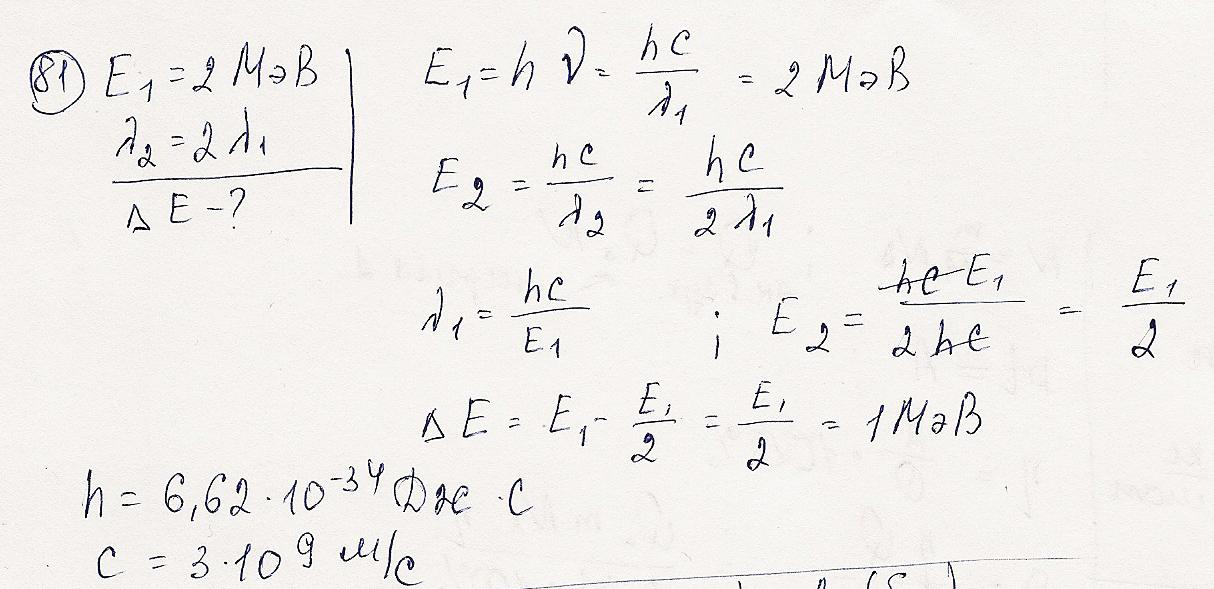 81 E₁ = 2 МэВ
λ₂ = 2 λ₁
Δ E - ?
E₁ = h ν = hc/λ₁ = 2 МэВ
E₂ = hc/λ₂ = hc/2 λ₁
λ₁ = hc/E₁ ; E₂ = hc E₁/2 hc = E₁/2
Δ E = E₁ - E₁/2 = E₁/2 = 1 МэВ
h = 6,62 · 10⁻³⁴ Дж · с
c = 3 · 10⁹ м/с